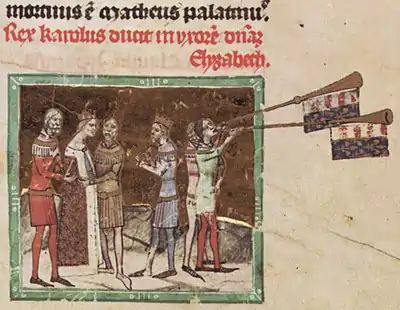 mortuus ē Matheus palatinꝰ.
Rex karolus ducit in vxorē dn̄aȝ
Elyzabeth.